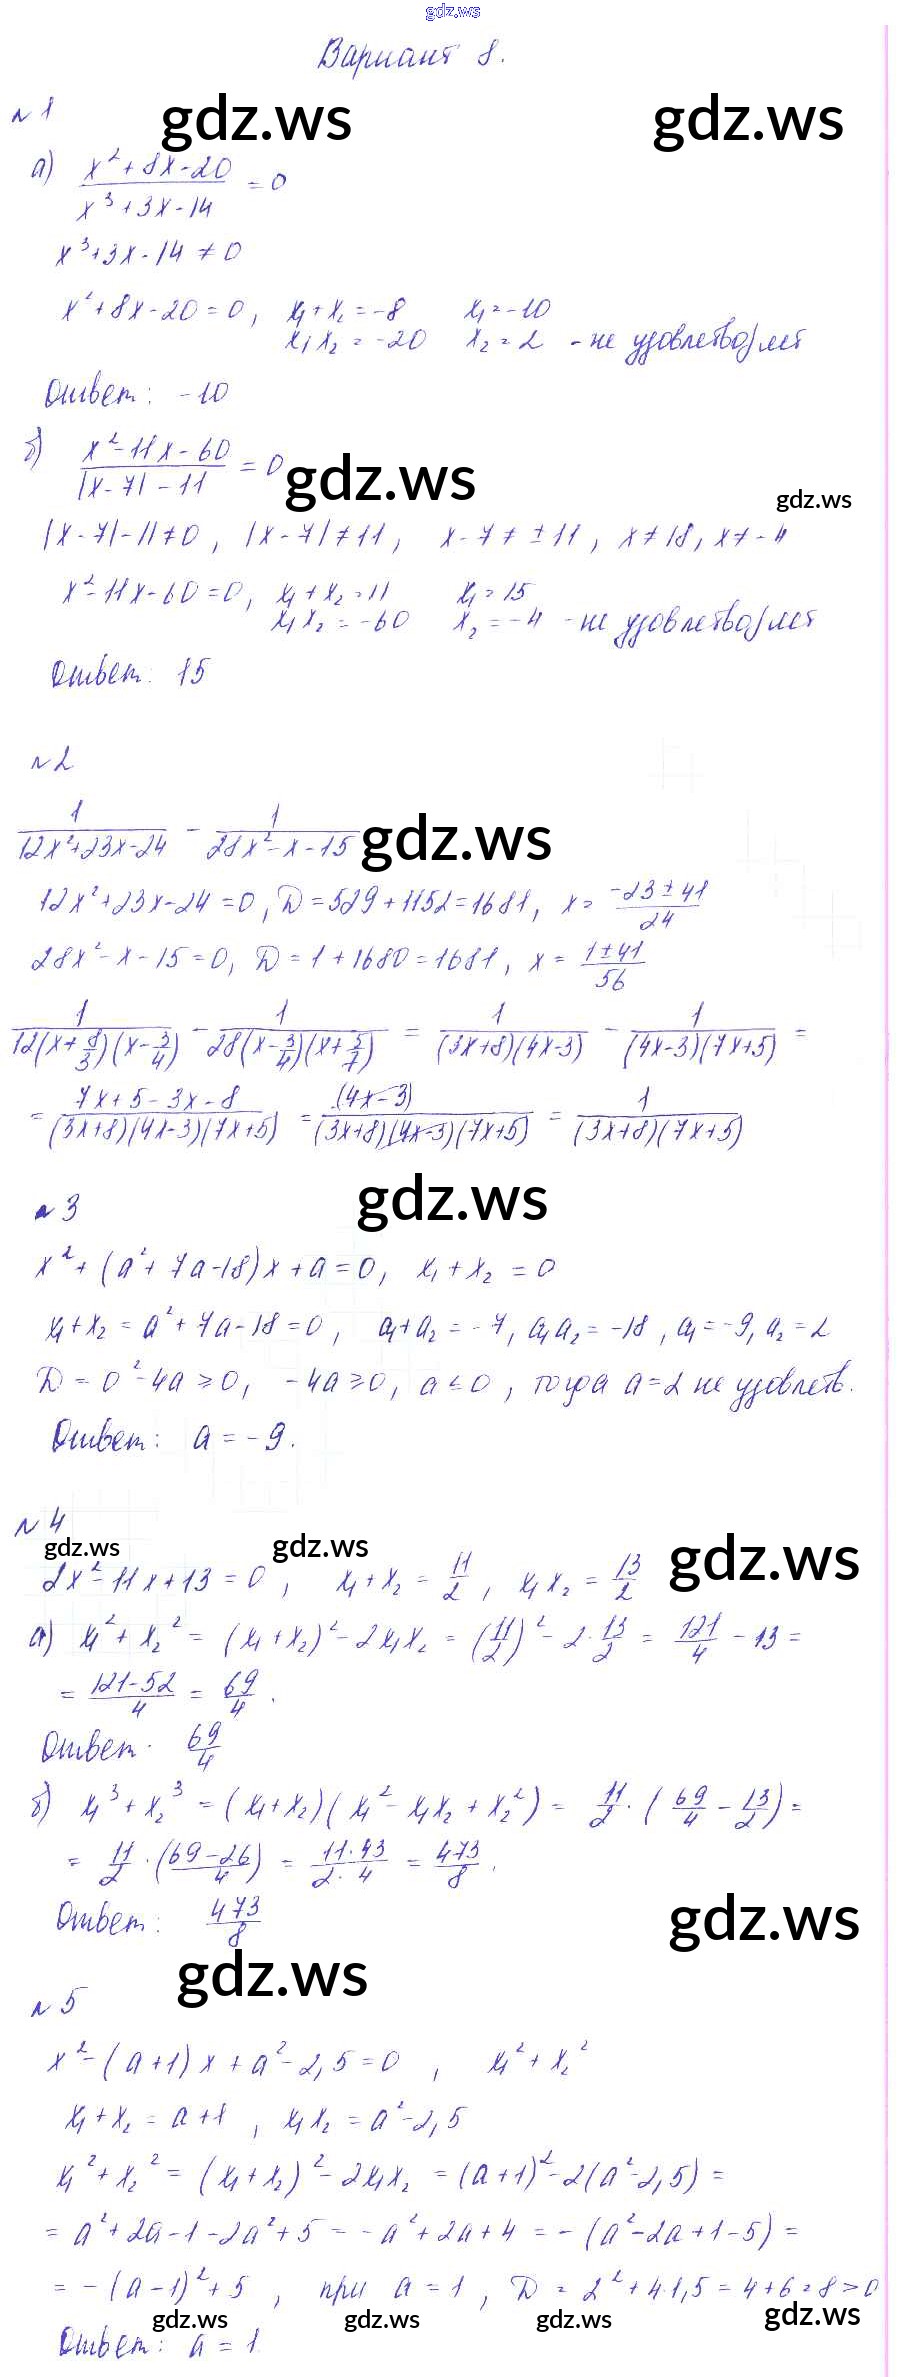 gdz.ws
Вариант 8.
№ 1
gdz.ws gdz.ws
а) (x² + 8x - 20)/(x³ + 3x - 14) = 0
x³ + 3x - 14 ≠ 0
x² + 8x - 20 = 0, x₁ + x₂ = -8 x₁ = -10
x₁ x₂ = -20 x₂ = 2 - не удовлетворяет
Ответ: -10
б) (x² - 11x - 60)/(|x - 7| - 11) = 0
gdz.ws gdz.ws
|x - 7| - 11 ≠ 0, |x - 7| ≠ 11, x - 7 ≠ ± 11, x ≠ 18, x ≠ -4
x² - 11x - 60 = 0, x₁ + x₂ = 11 x₁ = 15
x₁ x₂ = -60 x₂ = -4 - не удовлетворяет
Ответ: 15
№ 2
1/(12x² + 23x - 24) - 1/(28x² - x - 15) gdz.ws
12x² + 23x - 24 = 0, D = 529 + 1152 = 1681, x = (-23 ± 41)/24
28x² - x - 15 = 0, D = 1 + 1680 = 1681, x = (1 ± 41)/56
1/(12(x + 8/3)(x - 3/4)) - 1/(28(x - 3/4)(x + 5/7)) = 1/((3x+8)(4x-3)) - 1/((4x-3)(7x+5)) =
= (7x + 5 - 3x - 8)/((3x+8)(4x-3)(7x+5)) = (4x-3)/((3x+8)(4x-3)(7x+5)) = 1/((3x+8)(7x+5))
gdz.ws
№ 3
x² + (a² + 7a - 18)x + a = 0, x₁ + x₂ = 0
x₁ + x₂ = a² + 7a - 18 = 0, a₁ + a₂ = -7, a₁ a₂ = -18, a₁ = -9, a₂ = 2
D = 0² - 4a ≥ 0, -4a ≥ 0, a ≤ 0, тогда a = 2 не удовлетв.
Ответ: a = -9.
№ 4
gdz.ws gdz.ws gdz.ws
2x² - 11x + 13 = 0, x₁ + x₂ = 11/2, x₁ x₂ = 13/2
а) x₁² + x₂² = (x₁ + x₂)² - 2x₁x₂ = (11/2)² - 2·13/2 = 121/4 - 13 =
= (121 - 52)/4 = 69/4.
Ответ. 69/4
б) x₁³ + x₂³ = (x₁ + x₂)(x₁² - x₁x₂ + x₂²) = 11/2 · (69/4 - 13/2) =
= 11/2 · ((69 - 26)/4) = (11·43)/(2·4) = 473/8.
Ответ: 473/8
gdz.ws
gdz.ws
№ 5
x² - (a + 1)x + a² - 2,5 = 0, x₁² + x₂²
x₁ + x₂ = a + 1, x₁x₂ = a² - 2,5
x₁² + x₂² = (x₁ + x₂)² - 2x₁x₂ = (a + 1)² - 2(a² - 2,5) =
= a² + 2a - 1 - 2a² + 5 = -a² + 2a + 4 = -(a² - 2a + 1 - 5) =
= -(a - 1)² + 5, при a = 1, D = 2² + 4·1,5 = 4 + 6 = 8 > 0
gdz.ws gdz.ws gdz.ws gdz.ws
Ответ: a = 1